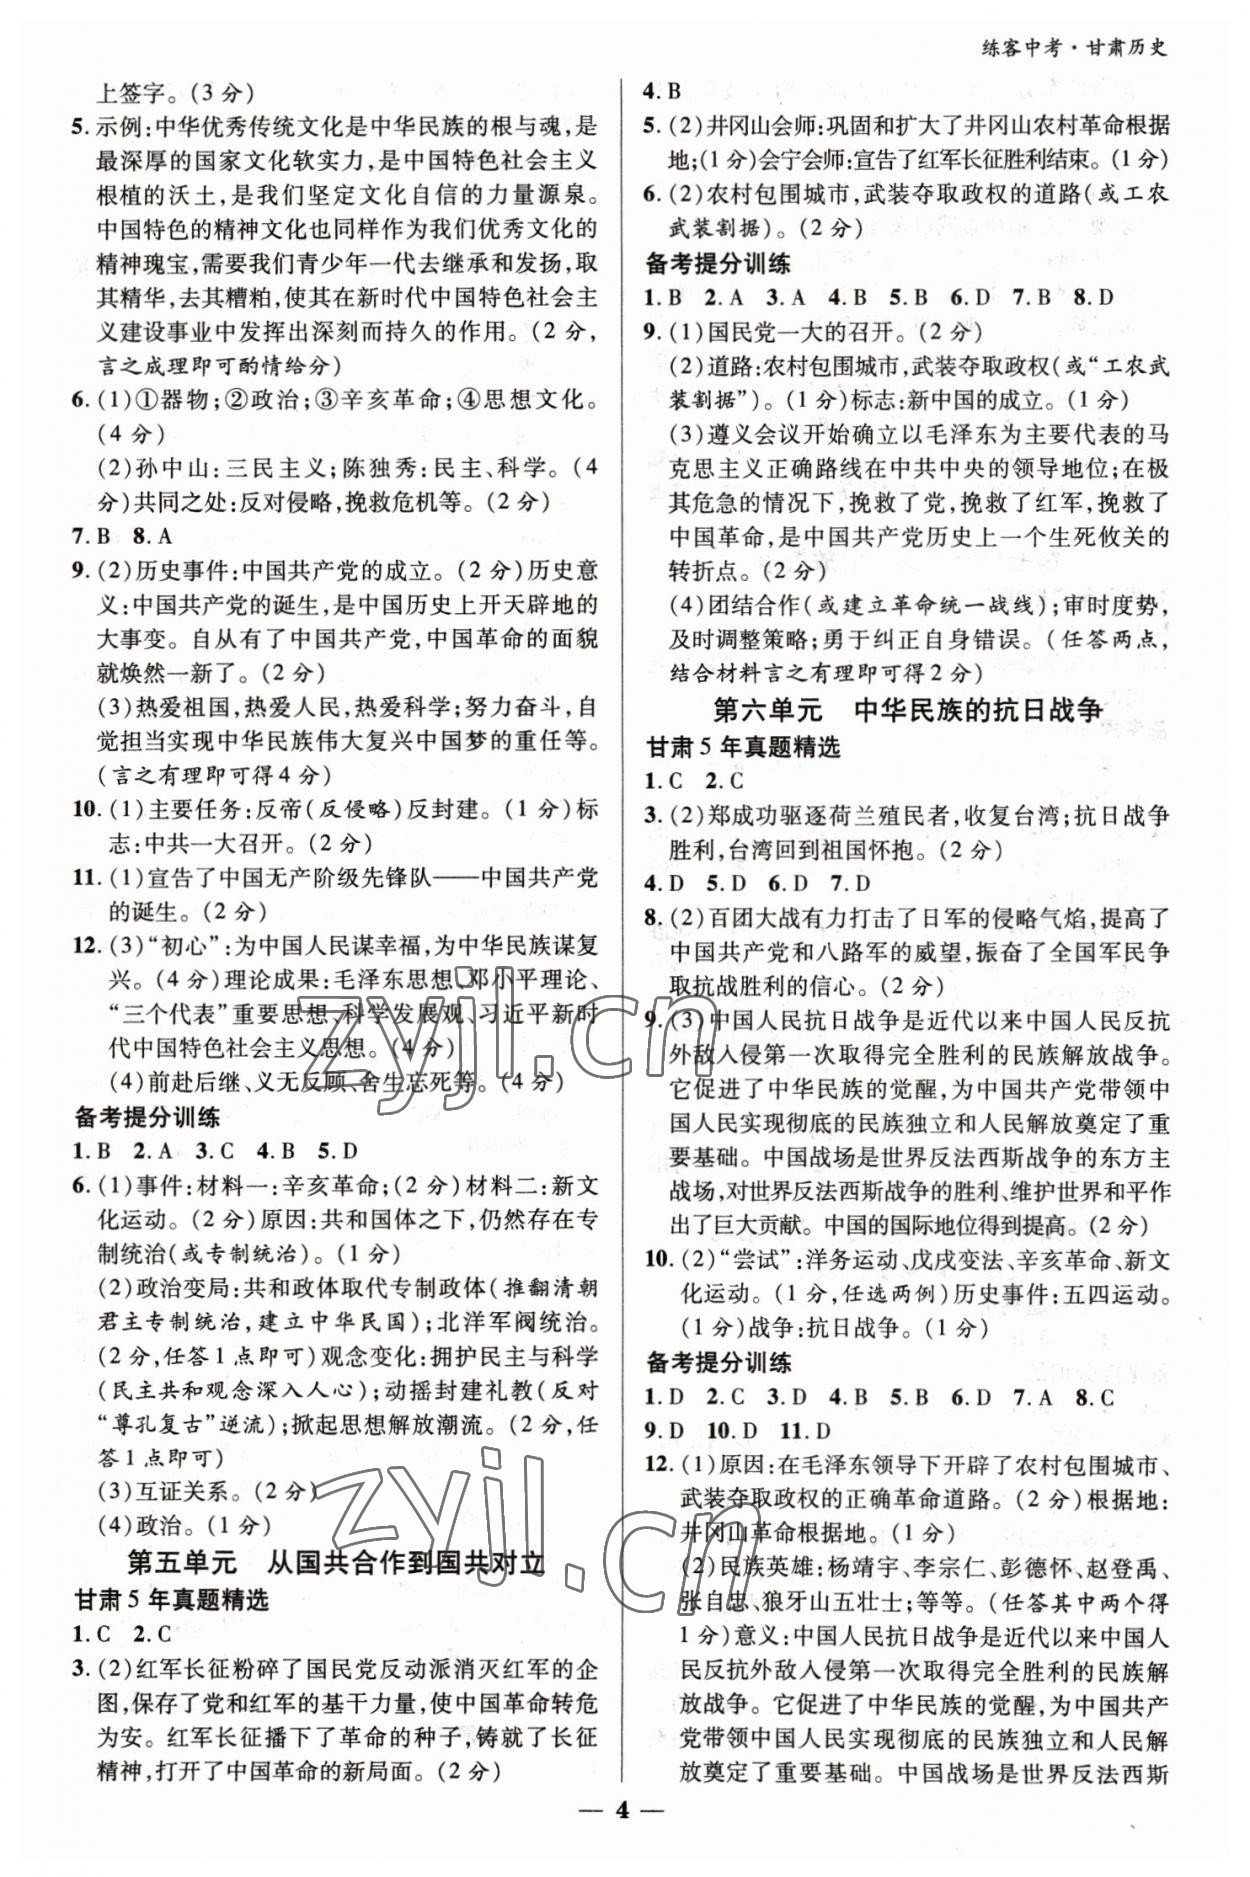 练客中考·甘肃历史
上签字。(3分)
5. 示例:中华优秀传统文化是中华民族的根与魂,是
最深厚的国家文化软实力,是中国特色社会主义
根植的沃土,是我们坚定文化自信的力量源泉。
中国特色的精神文化也同样作为我们优秀文化的
精神瑰宝,需要我们青少年一代去继承和发扬,取
其精华,去其糟粕,使其在新时代中国特色社会主
义建设事业中发挥出深刻而持久的作用。(2分,
言之成理即可酌情给分)
6. (1)①器物;②政治;③辛亥革命;④思想文化。
(4分)
(2)孙中山:三民主义;陈独秀:民主、科学。(4
分)共同之处:反对侵略,挽救危机等。(2分)
7. B 8. A
9. (2)历史事件:中国共产党的成立。(2分)历史意
义:中国共产党的诞生,是中国历史上开天辟地的
大事变。自从有了中国共产党,中国革命的面貌
就焕然一新了。(2分)
(3)热爱祖国,热爱人民,热爱科学;努力奋斗,自
觉担当实现中华民族伟大复兴中国梦的重任等。
(言之有理即可得4分)
10. (1)主要任务:反帝(反侵略)反封建。(1分)标
志:中共一大召开。(2分)
11. (1)宣告了中国无产阶级先锋队——中国共产党
的诞生。(2分)
12. (3)“初心”:为中国人民谋幸福,为中华民族谋复
兴。(4分)理论成果:毛泽东思想、邓小平理论、
“三个代表”重要思想、科学发展观、习近平新时
代中国特色社会主义思想。(4分)
(4)前赴后继、义无反顾、舍生忘死等。(4分)
备考提分训练
1. B 2. A 3. C 4. B 5. D
6. (1)事件:材料一:辛亥革命;(2分)材料二:新文
化运动。(2分)原因:共和国体之下,仍然存在专
制统治(或专制统治)。(1分)
(2)政治变局:共和政体取代专制政体(推翻清朝
君主专制统治,建立中华民国);北洋军阀统治。
(2分,任答1点即可)观念变化:拥护民主与科学
(民主共和观念深入人心);动摇封建礼教(反对
“尊孔复古”逆流);掀起思想解放潮流。(2分,任
答1点即可)
(3)互证关系。(2分)
(4)政治。(1分)
第五单元 从国共合作到国共对立
甘肃5年真题精选
1. C 2. C
3. (2)红军长征粉碎了国民党反动派消灭红军的企
图,保存了党和红军的基干力量,使中国革命转危
为安。红军长征播下了革命的种子,铸就了长征
精神,打开了中国革命的新局面。(2分)
4. B
5. (2)井冈山会师:巩固和扩大了井冈山农村革命根据
地;(1分)会宁会师:宣告了红军长征胜利结束。(1分)
6. (2)农村包围城市,武装夺取政权的道路(或工农
武装割据)。(2分)
备考提分训练
1. B 2. A 3. A 4. B 5. B 6. D 7. B 8. D
9. (1)国民党一大的召开。(2分)
(2)道路:农村包围城市,武装夺取政权(或“工农武
装割据”)。(1分)标志:新中国的成立。(1分)
(3)遵义会议开始确立以毛泽东为主要代表的马
克思主义正确路线在中共中央的领导地位;在极
其危急的情况下,挽救了党,挽救了红军,挽救了
中国革命,是中国共产党历史上一个生死攸关的
转折点。(2分)
(4)团结合作(或建立革命统一战线);审时度势,
及时调整策略;勇于纠正自身错误。(任答两点,
结合材料言之有理即可得2分)
第六单元 中华民族的抗日战争
甘肃5年真题精选
1. C 2. C
3. (2)郑成功驱逐荷兰殖民者,收复台湾;抗日战争
胜利,台湾回到祖国怀抱。(2分)
4. D 5. D 6. D 7. D
8. (2)百团大战有力打击了日军的侵略气焰,提高了
中国共产党和八路军的威望,振奋了全国军民争
取抗战胜利的信心。(2分)
9. (3)中国人民抗日战争是近代以来中国人民反抗
外敌入侵第一次取得完全胜利的民族解放战争。
它促进了中华民族的觉醒,为中国共产党带领中
国人民实现彻底的民族独立和人民解放奠定了重
要基础。中国战场是世界反法西斯战争的东方主
战场,对世界反法西斯战争的胜利、维护世界和平作
出了巨大贡献。中国的国际地位得到提高。(2分)
10. (2)“尝试”:洋务运动、戊戌变法、辛亥革命、新文
化运动。(1分,任选两例)历史事件:五四运动。
(1分)战争:抗日战争。(1分)
备考提分训练
1. D 2. C 3. D 4. D 5. D 6. D 7. A 8. C
9. D 10. D 11. D
12. (1)原因:在毛泽东领导下开辟了农村包围城市、
武装夺取政权的正确革命道路。(2分)根据地:
井冈山革命根据地。(1分)
(2)民族英雄:杨靖宇、李宗仁、彭德怀、赵登禹、
张自忠、狼牙山五壮士;等等。(任答其中两个得
1分)意义:中国人民抗日战争是近代以来中国人
民反抗外敌入侵第一次取得完全胜利的民族解
放战争。它促进了中华民族的觉醒,为中国共产
党带领中国人民实现彻底的民族独立和人民解
放奠定了重要基础。中国战场是世界反法西斯
— 4 —
zyjl.cn
zyjl.cn